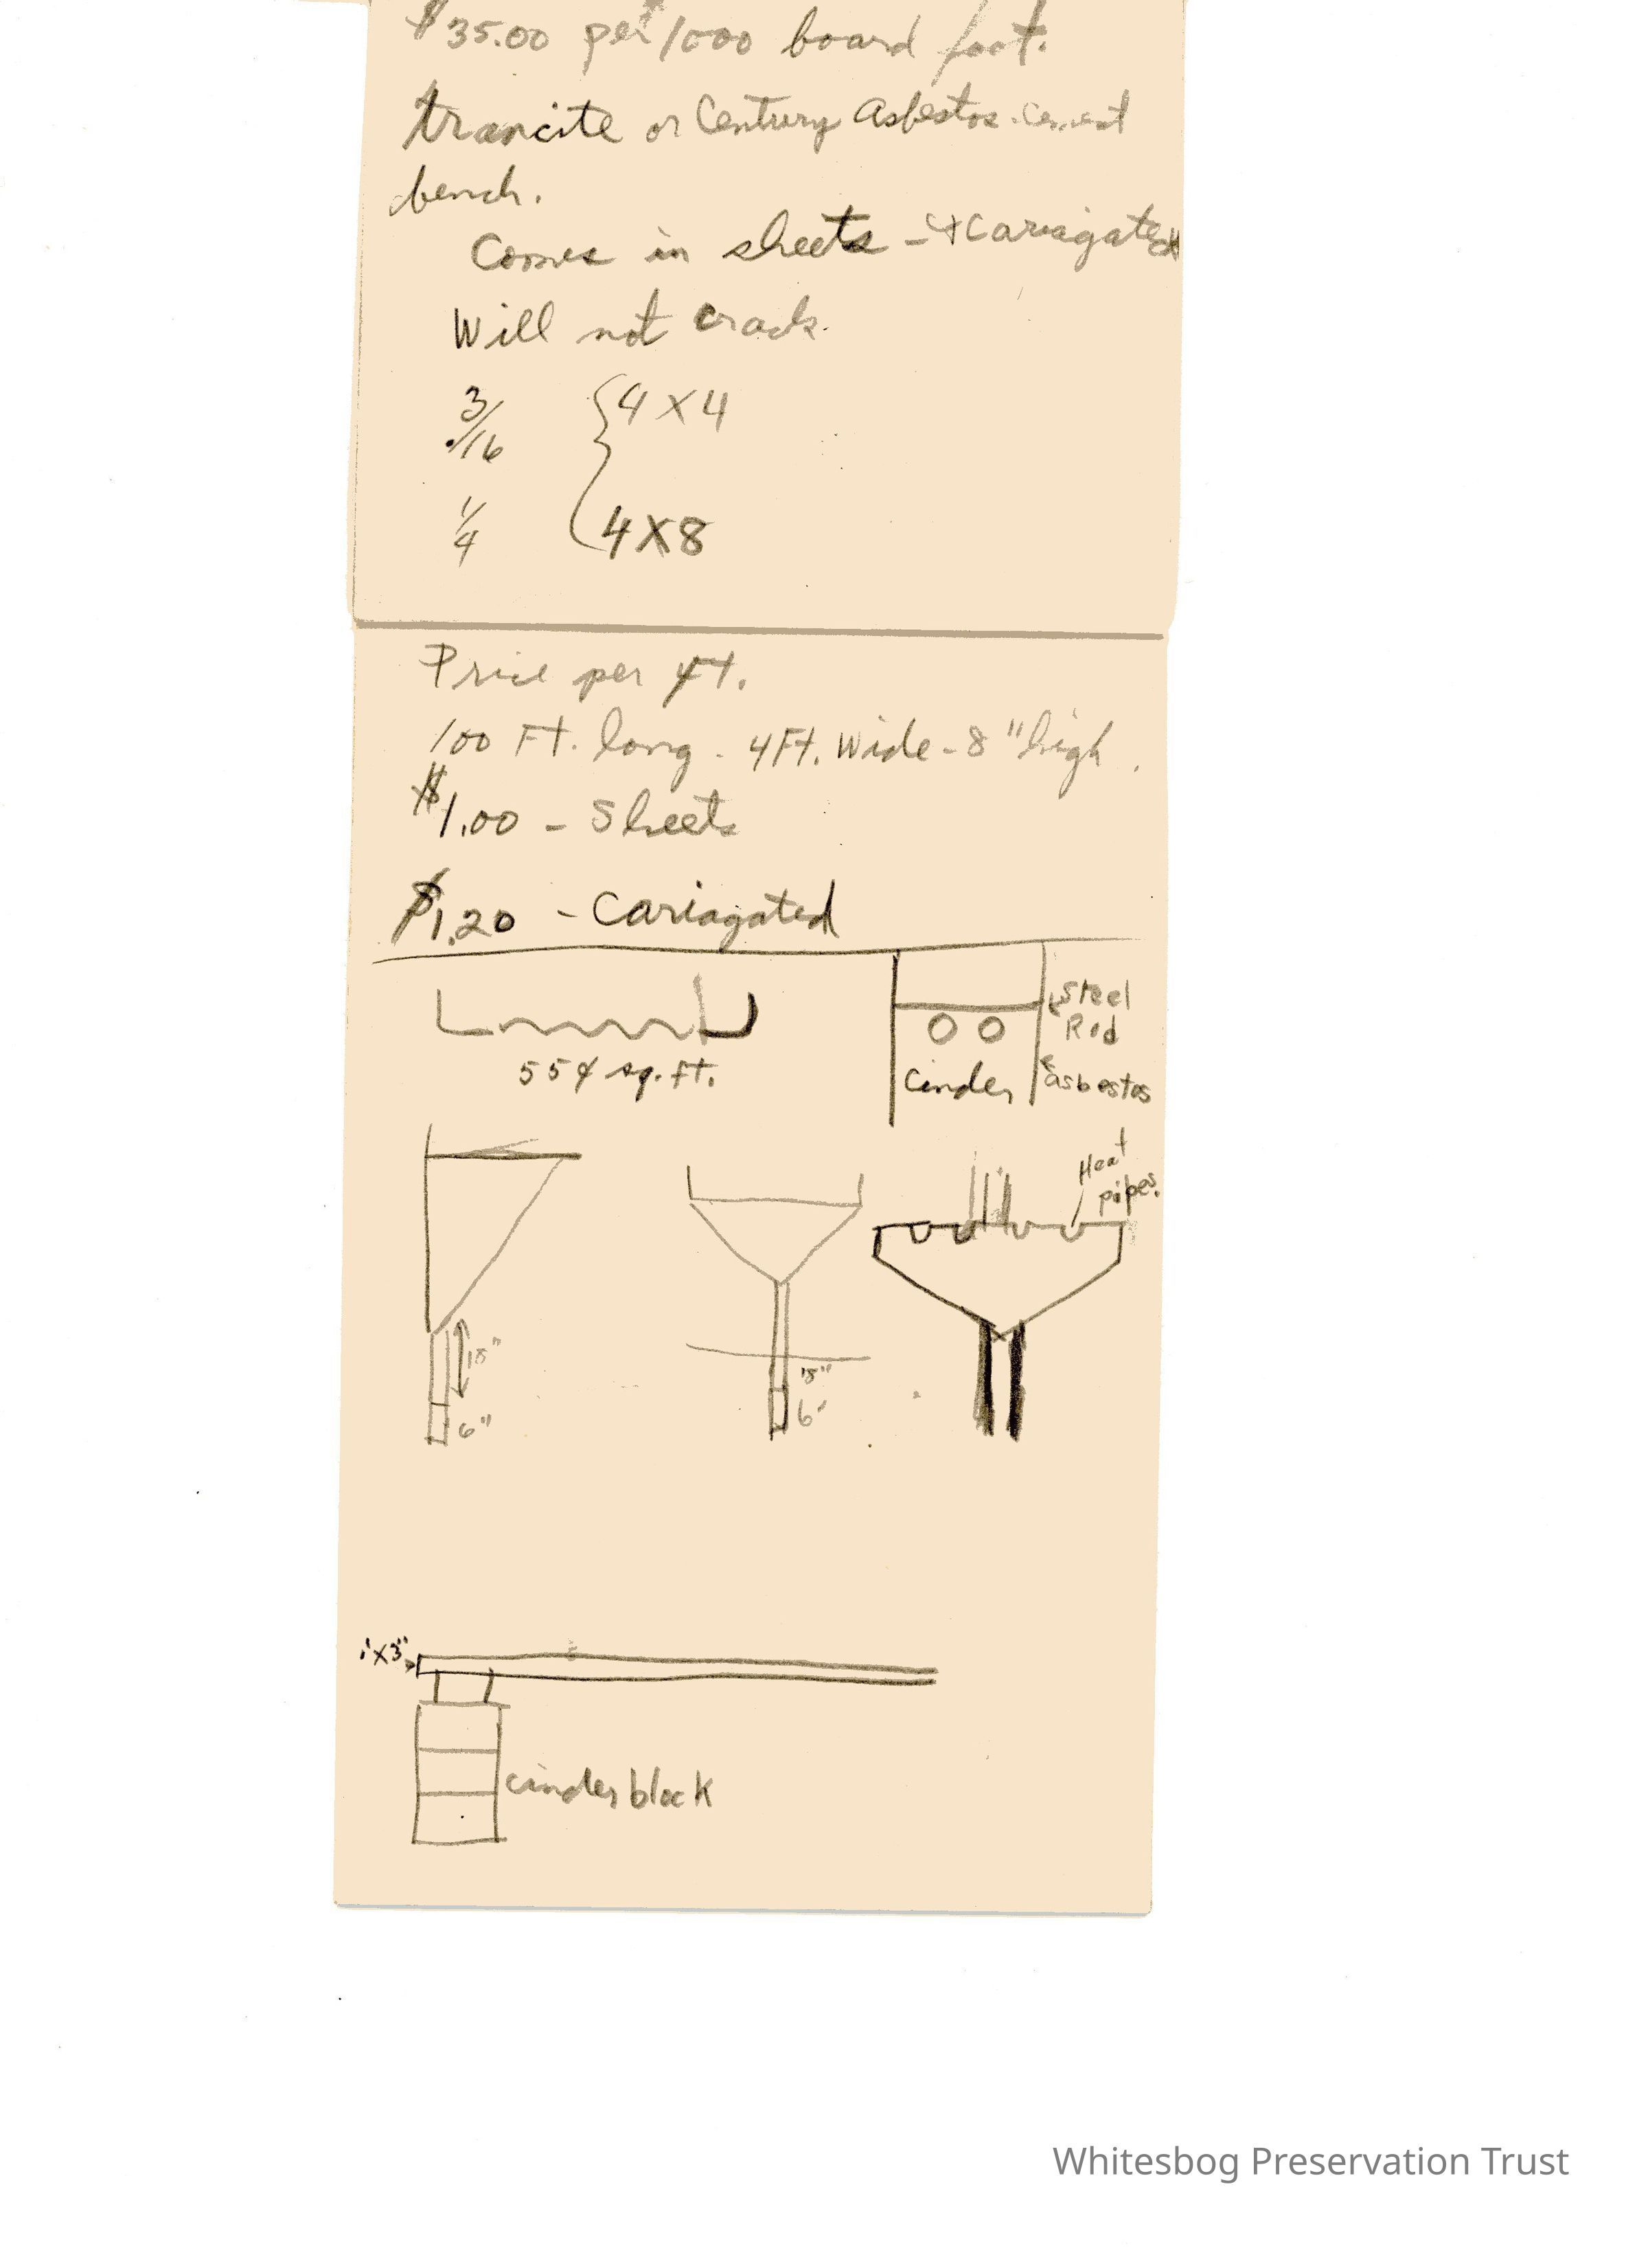 $35.00 per 1000 board foot.
trancite or Century Asbestos-cement
bench.
Comes in sheets - + Cariagated
Will not crack.
3/16 { 4 X 4
1/4 4 X 8
Price per ft.
100 Ft. long - 4 Ft. Wide - 8" high.
$1.00 - Sheets
$1.20 - Cariagated
55¢ sq. ft.
Steel
Rod
Cinder
asbestos
Heat
pipes.
18"
6"
18"
6"
1"X3"
cinder block
Whitesbog Preservation Trust